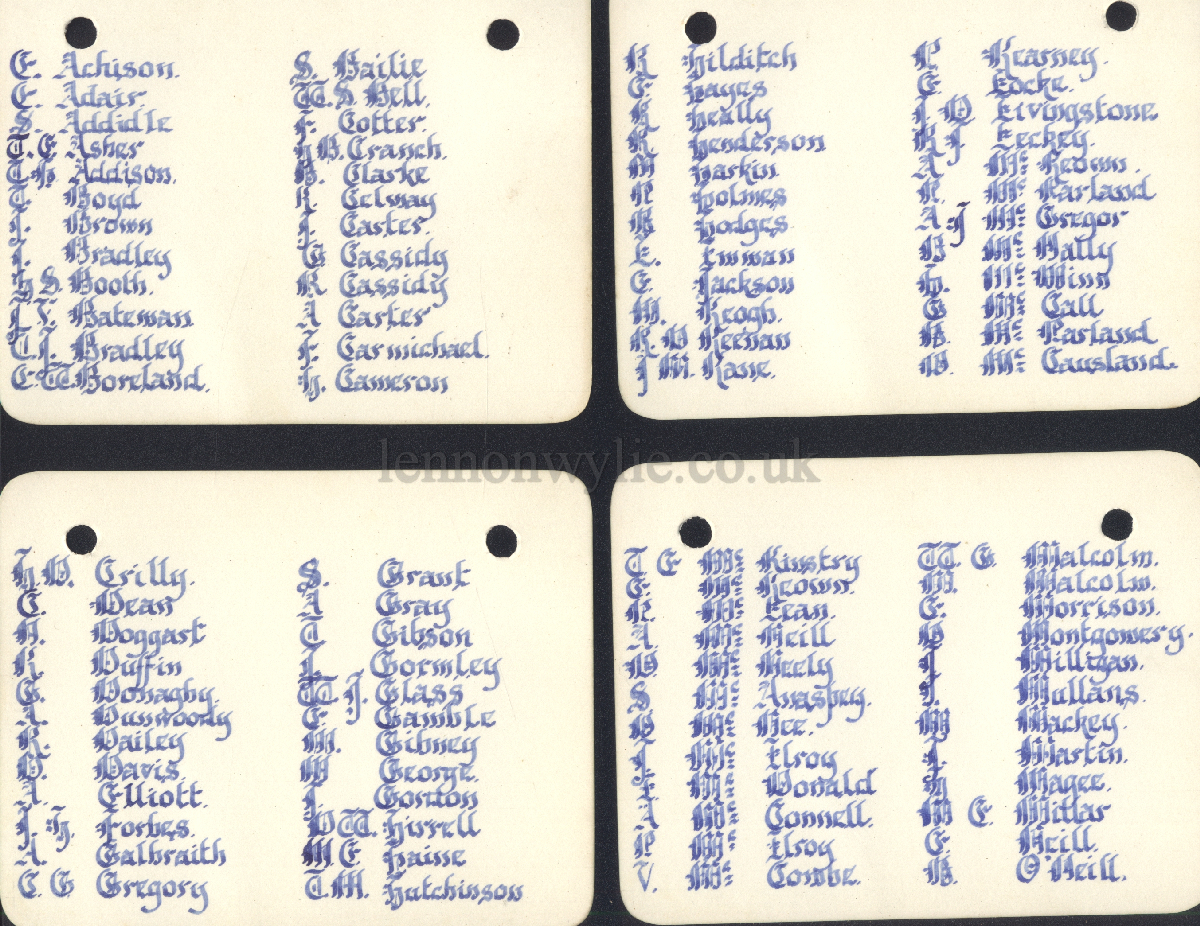 E. Achison.
E. Adair.
S. Addidle
T. E Asher
T. H. Addison.
T. Boyd
J. Brown
J. Bradley
H S. Booth.
Bateman
T. J. Bradley
E. W. Boreland.
S. Bailie
W. S Bell.
F. Cotter.
H B. Cranch.
Clarke
R. Celway
J. Carter.
G Cassidy
R Cassidy
A Carter
F. Carmichael.
H. Cameron
R Hilditch
E. Hayes
R Heally
R Henderson
M Harkin
P Holmes
B Hodges
E. Inman
E. Jackson
M. Keogh.
R. D Keenan
J M. Kane.
P Kearney.
E. Locke.
J. D. Livingstone.
R J. Leckey.
A Mc Keown.
R. Mc Farland
A J Mc Gregor
D Mc Nally
H. Mc Winn
G Mc Call
B. Mc Parland
D. Mc Causland.
lennonwylie.co.uk
H. D. Crilly.
C. Dean
N. Doggart
R Duffin
G. Donaghy.
A. Dunwoody
R. Dailey
D. Davis.
A. Elliott.
J. H. Forbes.
A. Galbraith
C. G Gregory
S. Grant
A Gray
T Gibson
L. Gormley
W. J. Glass
E Gamble
M. Gibney
M George.
J. Gordon
D W. Hirrell
M. E. Haine
T. M. Hutchinson
T E Mc Kinstry
E. Mc Keown.
P. Mc Lean.
A Mc Neill
D. Mc Neely
S Mc Anaspey.
D Mc Nee.
J. Mc Ilroy
F. Mc Donald
A Mc Connell.
P Mc Ilroy
V. Mc Combe.
W. G. Malcolm.
M. Malcolm.
E. Morrison.
D Montgomery.
J Milligan.
J. Mullans.
M Mackey.
J. Martin.
H Magee.
M E. Millar
E. Neill.
B. O'Neill.